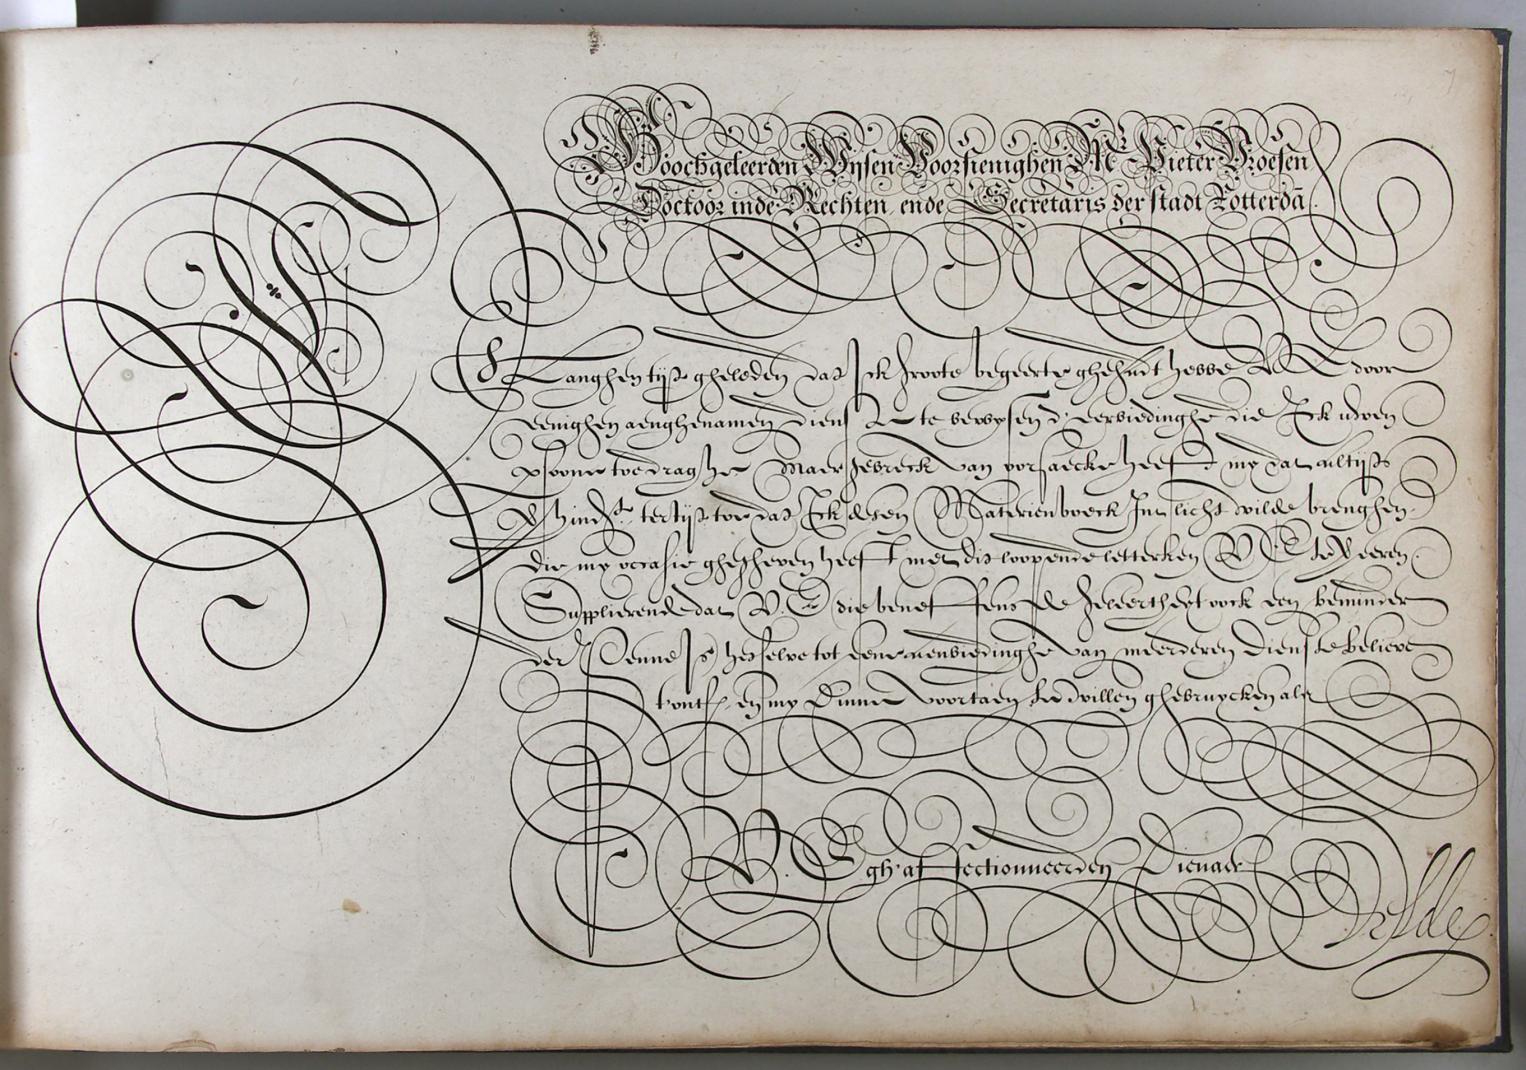 Hoochgeleerden Wijsen Voorsienighen Mr. Pieter Vroesen
Doctoor inde Rechten, ende Secretaris der stadt Rotterdā.
Langhen tijt gheleden dat Ick groote begeerte ghehadt hebbe V E door
eenighen aenghenamen dienst te bewijsen d'eerbiedinghe die Ick uwen
persoone toedraghe Maer gebreck van oorsaecke heeft my dat altijts
tertijt toe dat Ick desen Materienboeck Int licht wilde brenghen.
die my occasie ghegheven heeft met dit loopende letterken V E te
Supplierende dat V. E die beneffens de geleertheyt oock een beminder
der Penne Is, het selve tot eene aenbiedinghe van meerderen dienst te
en my voortaen te willen ghebruycken als
V. E gh'affectionneerden Dienaer
Velde